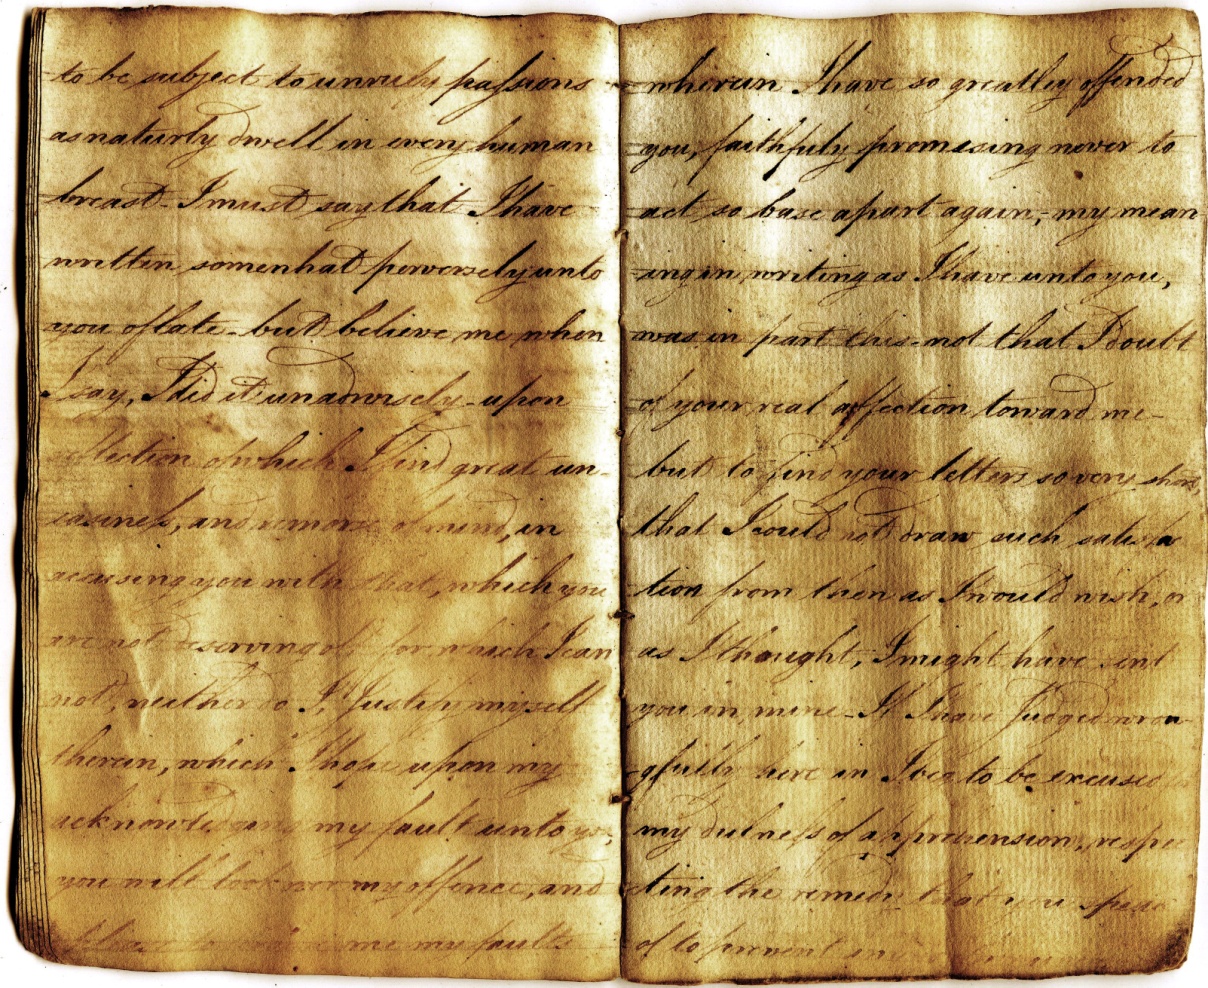 to be subject to unruly passions
as naturly dwell in every human
breast - I must say that I have
written somewhat perversely unto
you of late - but believe me when
I say, I did it unadvisely - upon
reflection of which I find great un-
easiness, and remorse of mind, in
accusing you with that, which you
are not deserving of, for which I can
not, neither do I, Justify myself
therein, which I hope upon my
acknowledging my fault unto you,
you will look over my offence, and
me my faults
wherein I have so greatley offended
you, faithfuly promising never to
act so base apart again, - my mean
ing in writing as I have unto you,
was in part this - not that I doubt
of your real affection toward me -
but to find your letters so very short,
that I could not draw such satisfa
tion from them as I would wish, or
as I thought, I might have sent
you in mine - If I have Judged wron
gfully here in I beg to be excused
my dulness of apprehension, respec
cting the remedy that you speak
of to prevent